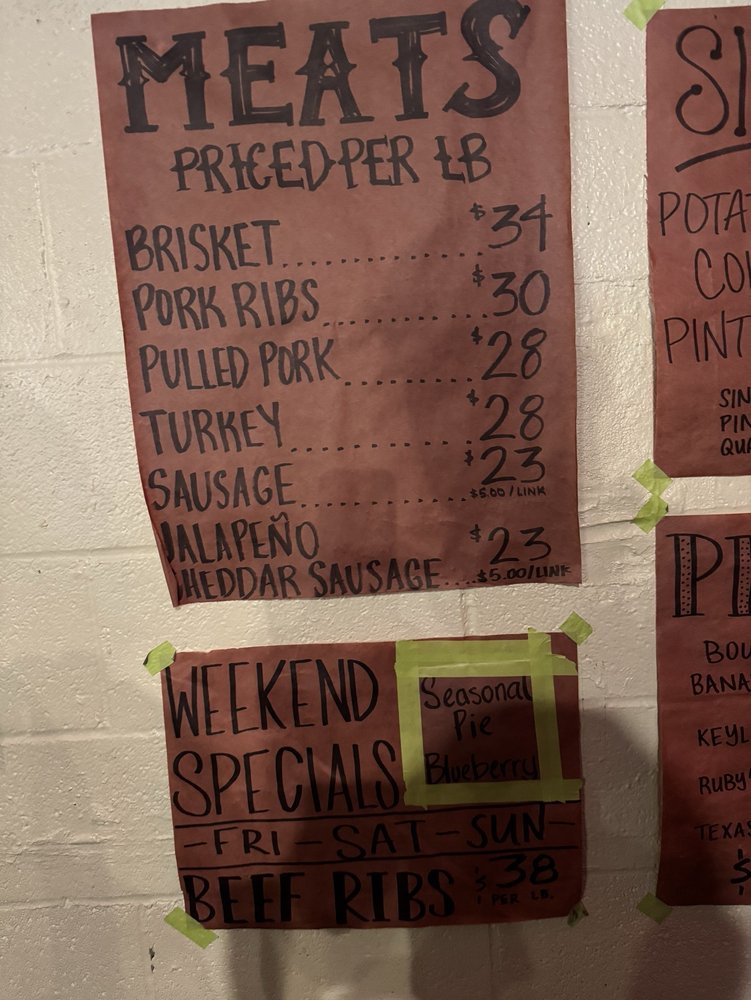 MEATS
PRICED PER LB
BRISKET.................$34
PORK RIBS.............$30
PULLED PORK..........$28
TURKEY................$28
SAUSAGE................$23
$5.00/LINK
JALAPEÑO $23
HEDDAR SAUSAGE...$5.00/LINK
WEEKEND
SPECIALS
Seasonal
Pie
Blueberry
-FRI-SAT-SUN-
BEEF RIBS $38
PER LB.
SI
POTA
CO
PINT
SIN
PIN
QUA
PI
BOU
BANA
KEYL
RUBY
TEXAS
$